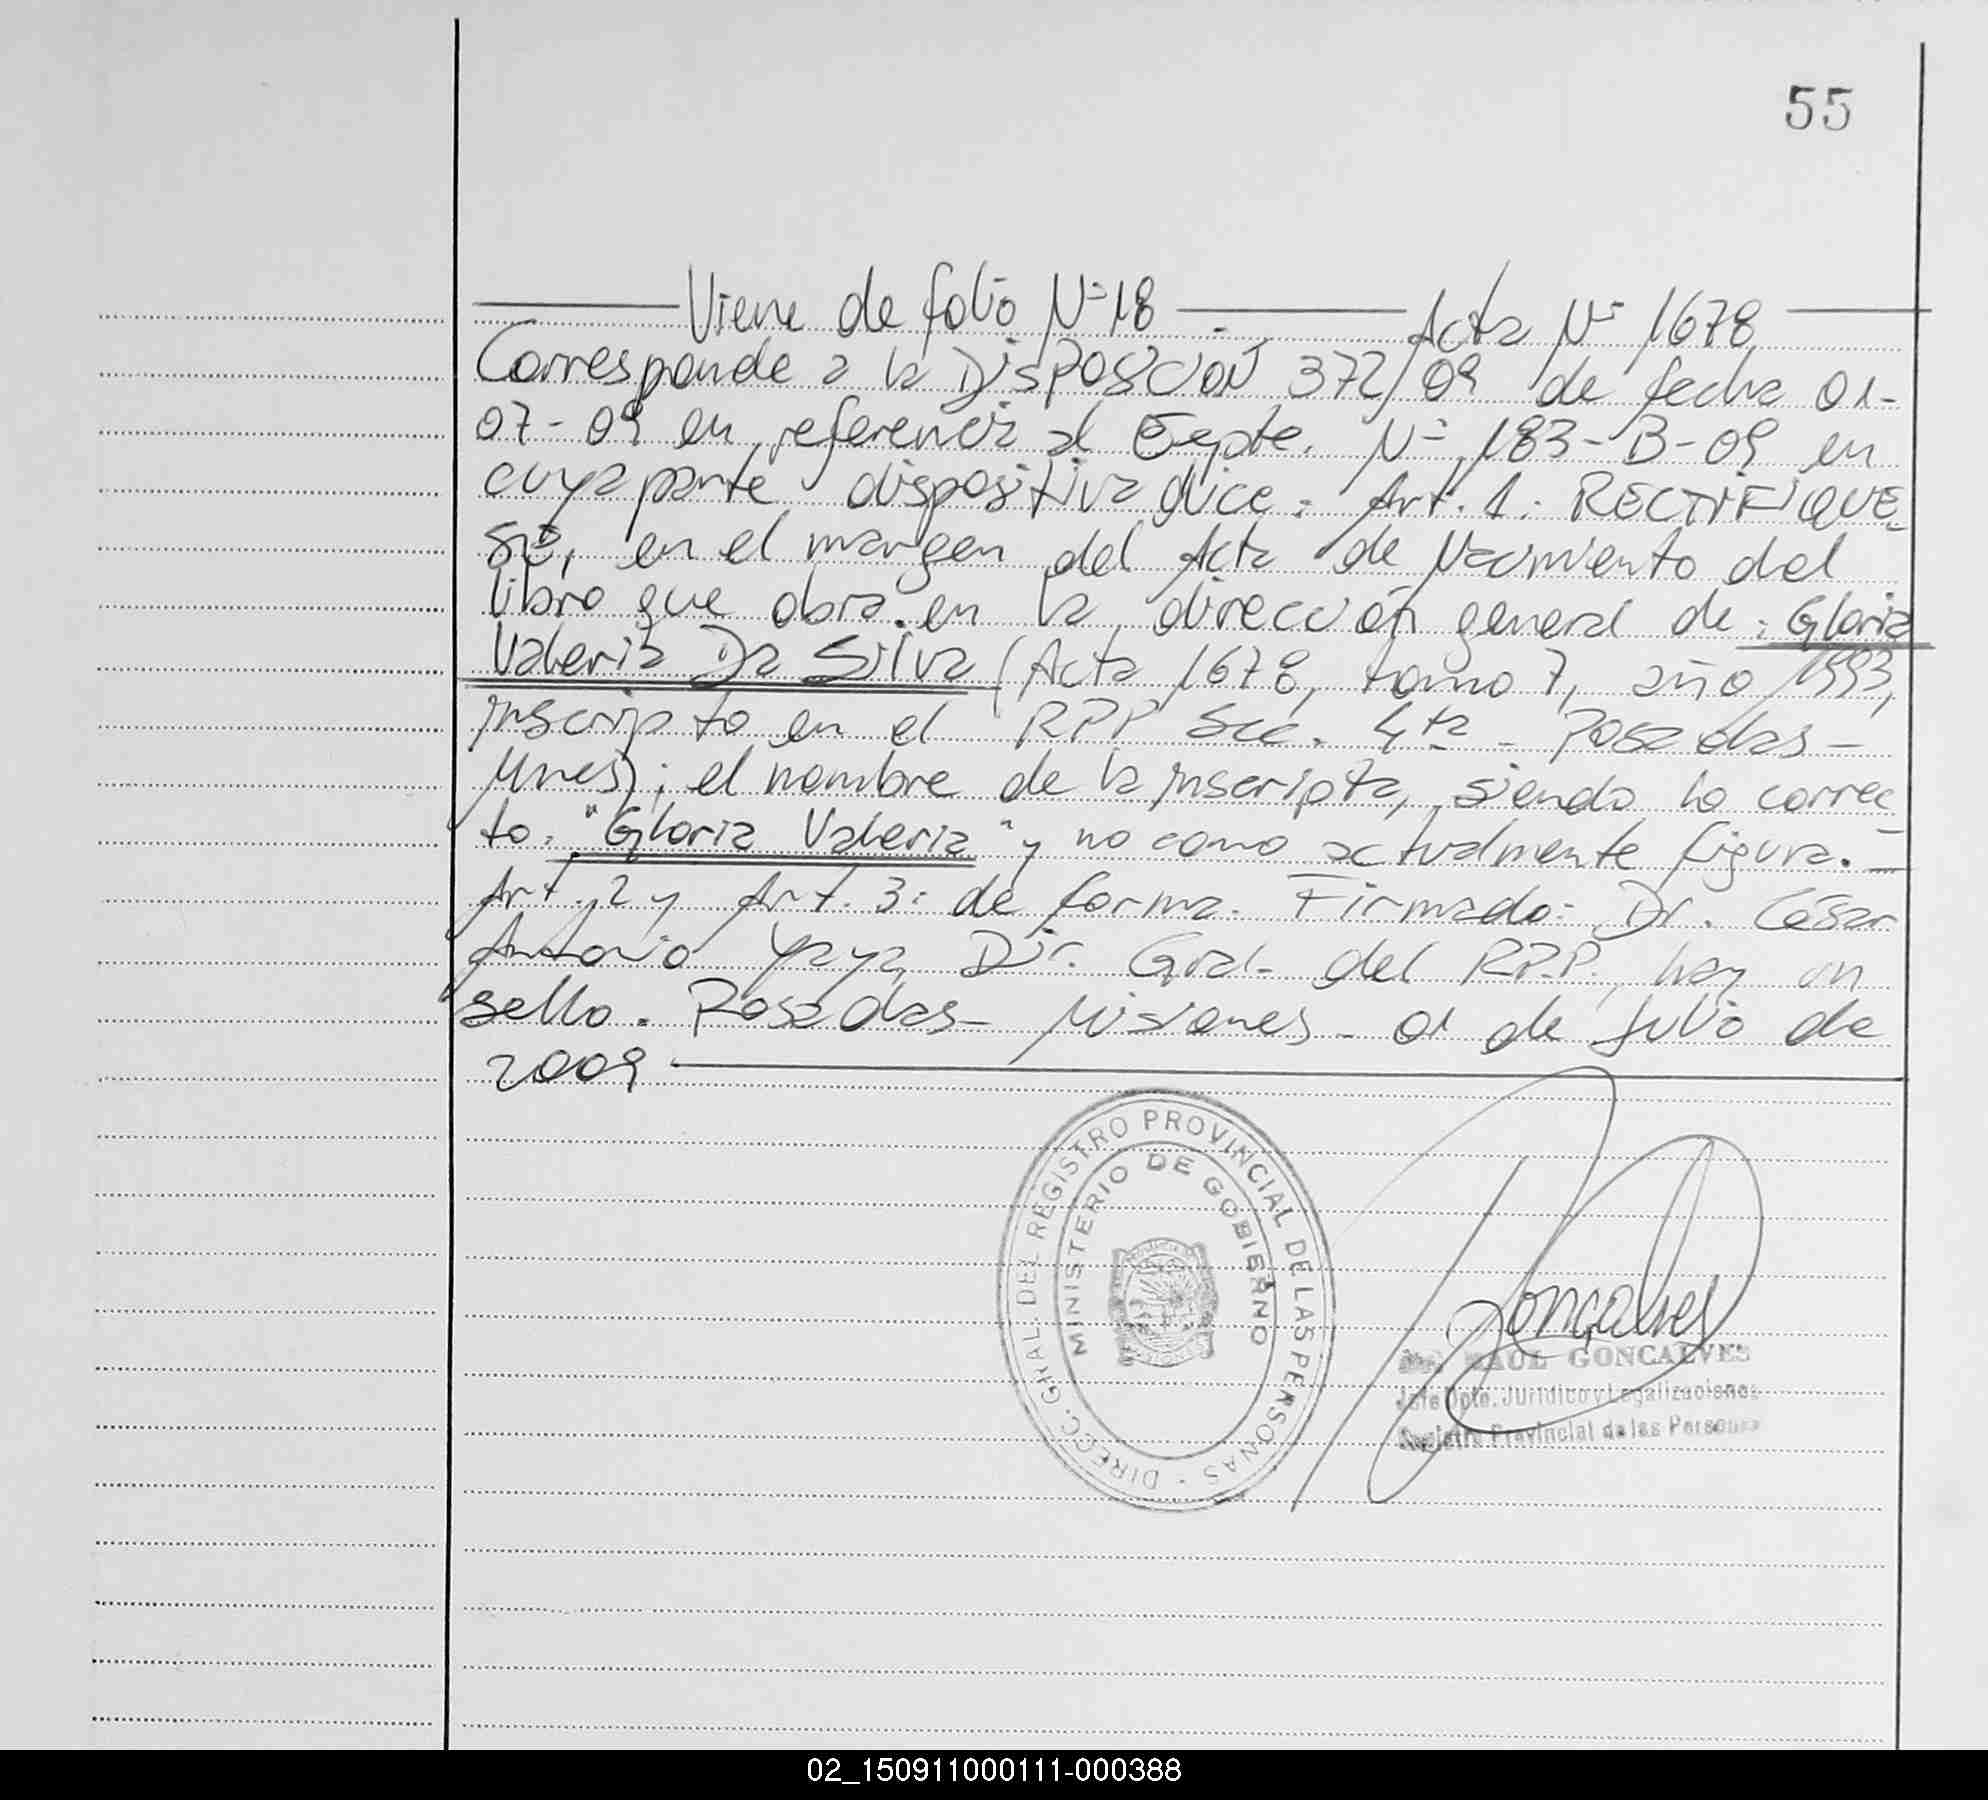 55
Viene de folio Nº 18 - Acta Nº 1678
Corresponde a la DISPOSICIÓN 372/09 de fecha 01-
07-09 en referencia al Expte. Nº 183-B-09 en
cuya parte dispositiva dice: Art. 1: RECTIFIQUE-
SE, en el margen del Acta de Nacimiento del
libro que obra en la dirección general de: Gloria
Valeria Da Silva (Acta 1678, tomo 7, año 1993,
inscripto en el RPP Sec. 4ta - Posadas -
Mnes); el nombre de la inscripta, siendo lo correc-
to: "Gloria Valeria" y no como actualmente figura. -
Art. 2 y Art. 3: de forma. Firmado: Dr. César
Antonio Yaya, Dir. Gral. del R.P.P., hay un
sello. Posadas - Misiones - 01 de Julio de
2009
DIRECC. GRAL. DEL REGISTRO PROVINCIAL DE LAS PERSONAS -
MINISTERIO DE GOBIERNO
Goncalves
RAUL GONCALVES
Jefe Dpto. Juridico y Legalizaciones
Registro Provincial de las Personas
02_150911000111-000388